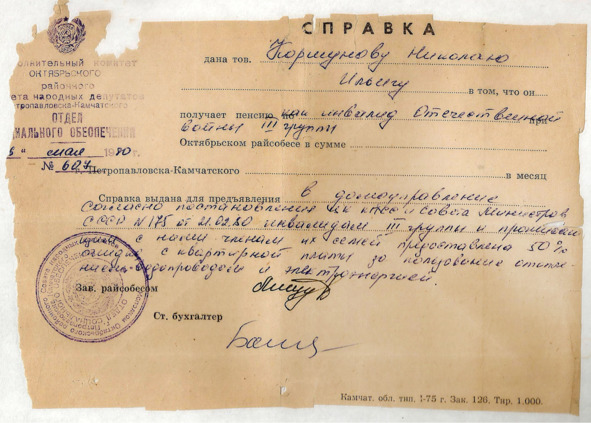 СПРАВКА
дана тов. Коршунову Николаю
Ильичу в том, что он
получает пенсию по как инвалид Отечественной при
войны III группы
Октябрьском райсобесе в сумме
г. Петропавловска-Камчатского в месяц
Справка выдана для предъявления в домоуправление
Согласно постановления ЦК КПСС и Совета Министров
СССР № 175 от 21.02.80 инвалидам III группы и
с ними членам их семей предоставлена 50%
с квартирной платы за пользование
водопроводом и электроэнергией
Зав. райсобесом
Ст. бухгалтер
Камчат. обл. тип. 1-75 г. Зак. 126. Тир. 1.000.
лнительный комитет
ОКТЯБРЬСКОГО
районного
ета народных депутатов
тропавловска-Камчатского
ОТДЕЛ
АЛЬНОГО ОБЕСПЕЧЕНИЯ
" мая 1980 г.
№ 607